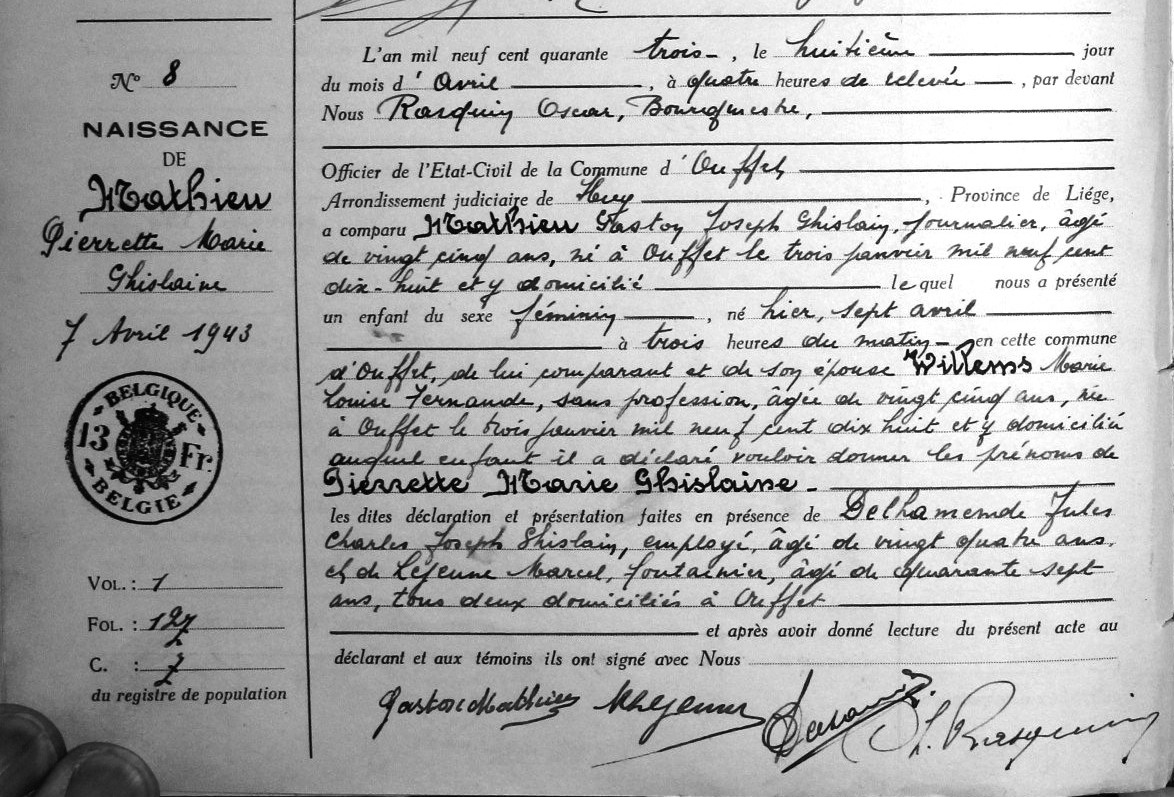 N° 8
NAISSANCE
DE
Mathieu
Pierrette Marie
Ghislaine
7 Avril 1943
BELGIQUE
13 Fr.
BELGIE
VOL. : 1
FOL. : 127
C. : 7
du registre de population
L'an mil neuf cent quarante trois, le huitième jour
du mois d'Avril, à quatre heures de relevée, par devant
Nous Rasquin Oscar, Bourgmestre,
Officier de l'Etat-Civil de la Commune d'Ouffet
Arrondissement judiciaire de Huy, Province de Liége,
a comparu Mathieu Gaston Joseph Ghislain, journalier, âgé
de vingt cinq ans, né à Ouffet le trois janvier mil neuf cent
dix-huit et y domicilié lequel nous a présenté
un enfant du sexe féminin, né hier, sept avril
à trois heures du matin en cette commune
d'Ouffet, de lui comparant et de son épouse Willems Marie
Louise Fernande, sans profession, âgée de vingt cinq ans, née
à Ouffet le trois janvier mil neuf cent dix huit et y domiciliée
auquel enfant il a déclaré vouloir donner les prénoms de
Pierrette Marie Ghislaine
les dites déclaration et présentation faites en présence de Delhamende Jules
Charles Joseph Ghislain, employé, âgé de vingt quatre ans,
et de Lejeune Marcel, fontainier, âgé de quarante sept
ans, tous deux domiciliés à Ouffet
et après avoir donné lecture du présent acte au
déclarant et aux témoins ils ont signé avec Nous
Gaston Mathieu MLejeune O. Rasquin